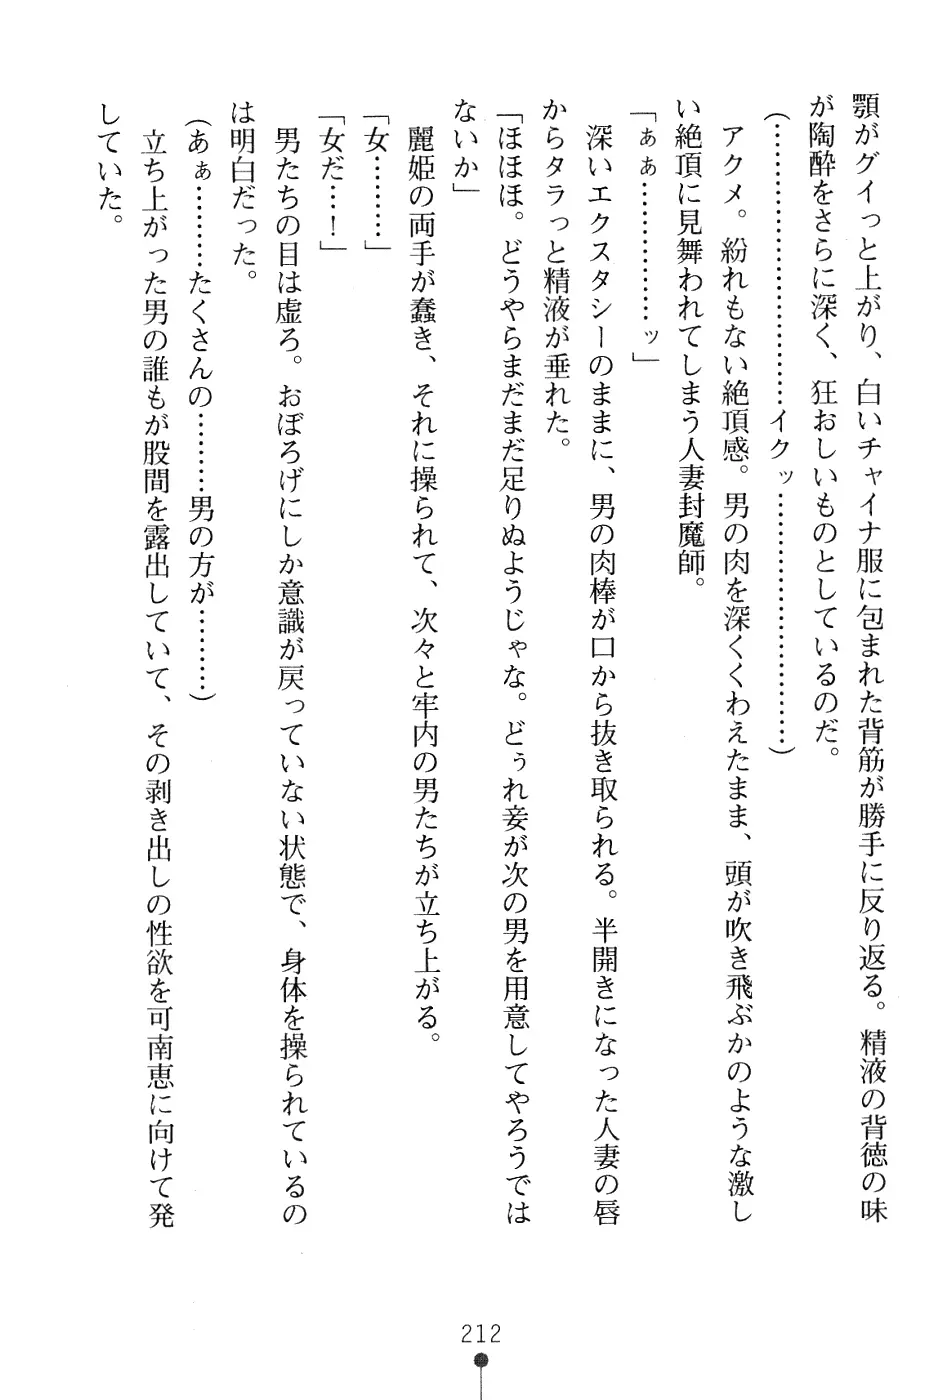 顎がグイっと上がり、白いチャイナ服に包まれた背筋が勝手に反り返る。精液の背徳の味
が陶酔をさらに深く、狂おしいものとしているのだ。
(……………………イクッ……………………)
アクメ。紛れもない絶頂感。男の肉を深くくわえたまま、頭が吹き飛ぶかのような激し
い絶頂に見舞われてしまう人妻封魔師。
「ぁぁ…………ッ」
深いエクスタシーのままに、男の肉棒が口から抜き取られる。半開きになった人妻の唇
からタラっと精液が垂れた。
「ほほほ。どうやらまだまだ足りぬようじゃな。どぅれ妾が次の男を用意してやろうでは
ないか」
麗姫の両手が蠢き、それに操られて、次々と牢内の男たちが立ち上がる。
「女………」
「女だ…！」
男たちの目は虚ろ。おぼろげにしか意識が戻っていない状態で、身体を操られているの
は明白だった。
(あぁ………たくさんの………男の方が………)
立ち上がった男の誰もが股間を露出していて、その剥き出しの性欲を可南恵に向けて発
していた。
212